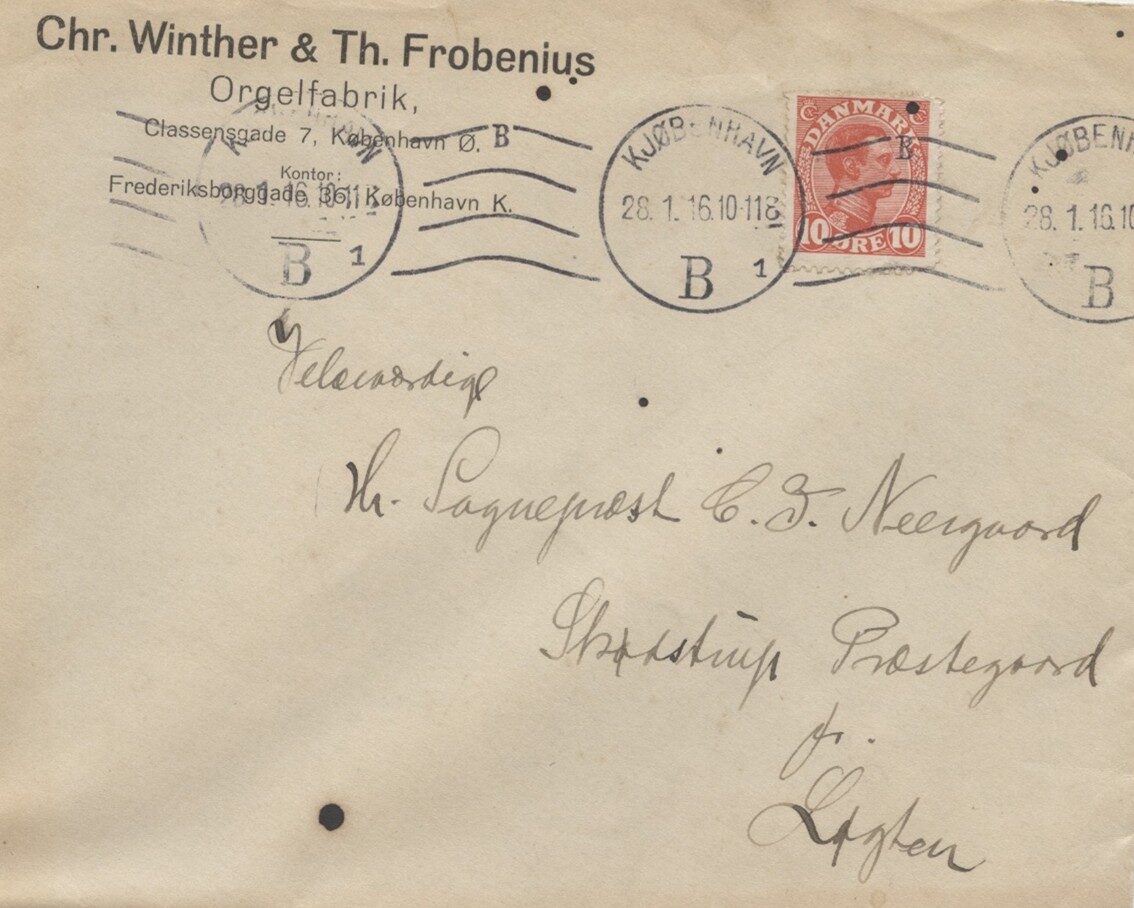 Chr. Winther & Th. Frobenius
Orgelfabrik,
Classensgade 7, København Ø.
Kontor:
Frederiksborggade 36, København K.
KJØBENHAVN
28. 1. 16. 10-11
B 1
B
KJØBENHAVN
28. 1. 16. 10-11
B 1
DANMARK
10 ØRE 10
B
KJØBENH
28. 1. 16. 10
B
Velærværdige
Hr. Sognepræst C. F. Neergaard
Skødstrup Præstegaard
pr.
Løgten